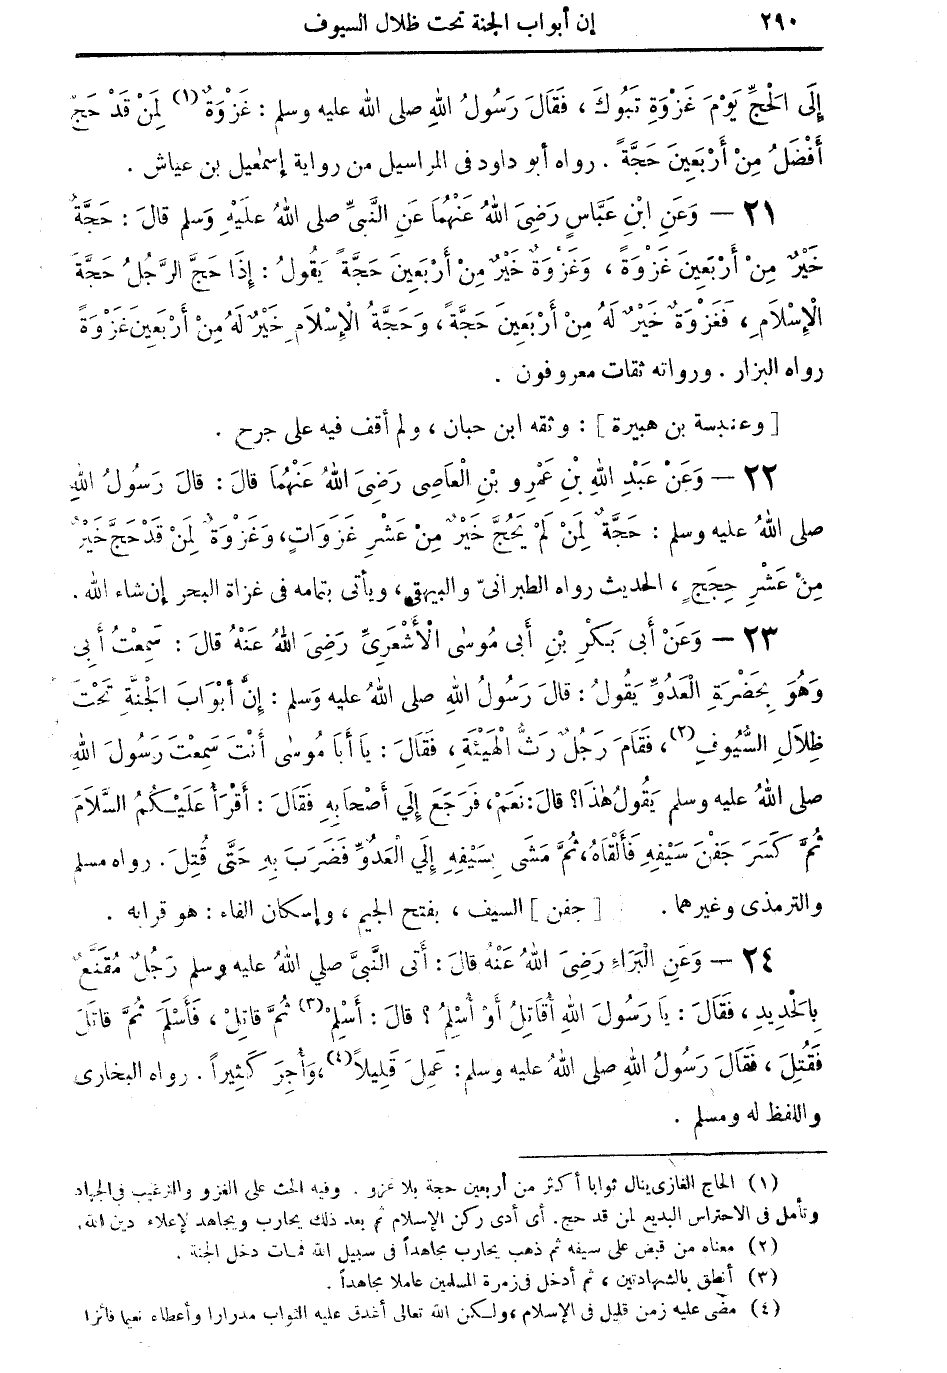 ٢٩٠ إن أبواب الجنة تحت ظلال السيوف
إِلَى الْحَجِّ يَوْمَ غَزْوَةِ تَبُوكَ ، فَقَالَ رَسُولُ اللهِ صلى الله عليه وسلم : غَزْوَةٌ (١) لِمَنْ قَدْ حَجَّ
أَفْضَلُ مِنْ أَرْبَعِينَ حَجَّةً . رواه أبو داود فى المراسيل من رواية إسمٰعيل بن عياش .
٢١ — وَعَنِ ابْنِ عَبَّاسٍ رَضِىَ اللهُ عَنْهُمَا عَنِ النَّبِيِّ صلى اللهُ عَلَيْهِ وَسلم قالَ : حَجَّةٌ
خَيْرٌ مِنْ أَرْبَعِينَ غَزْوَةً ، وَغَزْوَةٌ خَيْرٌ مِنْ أَرْبَعِينَ حَجَّةً يَقُولُ : إِذَا حَجَّ الرَّجُلُ حَجَّةَ
الْإِسْلَامِ ، فَغَزْوَةٌ خَيْرٌ لَهُ مِنْ أَرْبَعِينَ حَجَّةً ، وَحَجَّةُ الْإِسْلَامِ خَيْرٌ لَهُ مِنْ أَرْبَعِينَ غَزْوَةً
رواه البزار . ورواته ثقات معروفون .
[ وعنبسة بن هبيرة ] : وثقه ابن حبان ، ولم أقف فيه على جرح .
٢٢ — وَعَنْ عَبْدِ اللهِ بْنِ عَمْرِو بْنِ الْعَاصِى رَضِىَ اللهُ عَنْهُمَا قالَ : قالَ رَسُولُ اللهِ
صلى اللهُ عليه وسلم : حَجَّةٌ لِمَنْ لَمْ يَحُجَّ خَيْرٌ مِنْ عَشْرِ غَزَوَاتٍ، وَغَزْوَةٌ لِمَنْ قَدْ حَجَّ خَيْرٌ
مِنْ عَشْرِ حِجَجٍ ، الحديث رواه الطبرانىّ والبيهقى، ويأتى بتمامه فى غزاة البحر إن شاء الله .
٢٣ — وَعَنْ أَبى بَكْرِ بْنِ أَبى مُوسٰى الْأَشْعَرِىِّ رَضِىَ اللهُ عَنْهُ قالَ : سَمِعْتُ أَبِى
وَهُوَ بِحَضْرَةِ الْعَدُوِّ يَقُولُ : قالَ رَسُولُ اللهِ صلى اللهُ عليه وَسلم : إِنَّ أَبْوَابَ الْجَنَّةِ تَحْتَ
ظِلَالِ السُّيُوفِ (٢)، فَقَامَ رَجُلٌ رَثُّ الْهَيْئَةِ ، فَقَالَ : يا أَبَا مُوسٰى أَنْتَ سَمِعْتَ رَسُولَ اللهِ
صلى اللهُ عليه وسلم يَقُولُ هٰذَا؟ قالَ: نَعَمْ، فَرَجَعَ إِلَي أَصْحَابِهِ فَقَالَ : أَقْرَأُ عَلَيْكُمُ السَّلَامَ
ثُمَّ كَسَرَ جَفْنَ سَيْفِهِ فَأَلْقَاهُ، ثُمَّ مَشَى بِسَيْفِهِ إِلَي الْعَدُوِّ فَضَرَبَ بِهِ حَتَّى قُتِلَ . رواه مسلم
والترمذى وغيرهما . [ جفن ] السيف ، بفتح الجيم ، وإسكان الفاء : هو قرابه .
٢٤ — وَعَنِ الْبَرَاءِ رَضِىَ اللهُ عَنْهُ قالَ : أَتى النَّبىَّ صلي اللهُ عليه وسلم رَجُلٌ مُقَنَّعٌ
بِالْحَدِيدِ ، فَقَالَ : يا رَسُولَ اللهِ أُقاتِلُ أَوْ أُسْلِمُ ؟ قالَ : أَسْلِمْ (٣) ثُمَّ قاتِلْ ، فَأَسْلَمَ ثُمَّ قاتَلَ
فَقُتِلَ ، فَقَالَ رَسُولُ اللهِ صلى اللهُ عليه وسلم : عَمِلَ قَلِيلاً (٤)، وَأُجِرَ كَثِيراً . رواه البخارى
واللفظ له ومسلم .
(١) الحاج الغازى ينال ثوابا أكثر من أربعين حجة بلا غزو . وفيه الحث على الغزو والترغيب فى الجهاد
وتأمل فى الاحتراس البديع لمن قد حج. أى أدى ركن الإسلام ثم بعد ذلك يحارب ويجاهد لإعلاء دين الله.
(٢) معناه من قبض على سيفه ثم ذهب يحارب مجاهداً فى سبيل الله فمات دخل الجنة .
(٣) أنطق بالشهادتين ، ثم أدخل فى زمرة المسلمين عاملا مجاهداً .
(٤) مضى عليه زمن قليل فى الإسلام ، ولكن الله تعالى أغدق عليه الثواب مدرارا وأعطاه نعيما فائزا